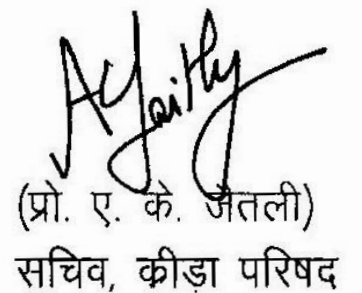 AKJaitly
(प्रो. ए. के. जैतली)
सचिव, कीड़ा परिषद